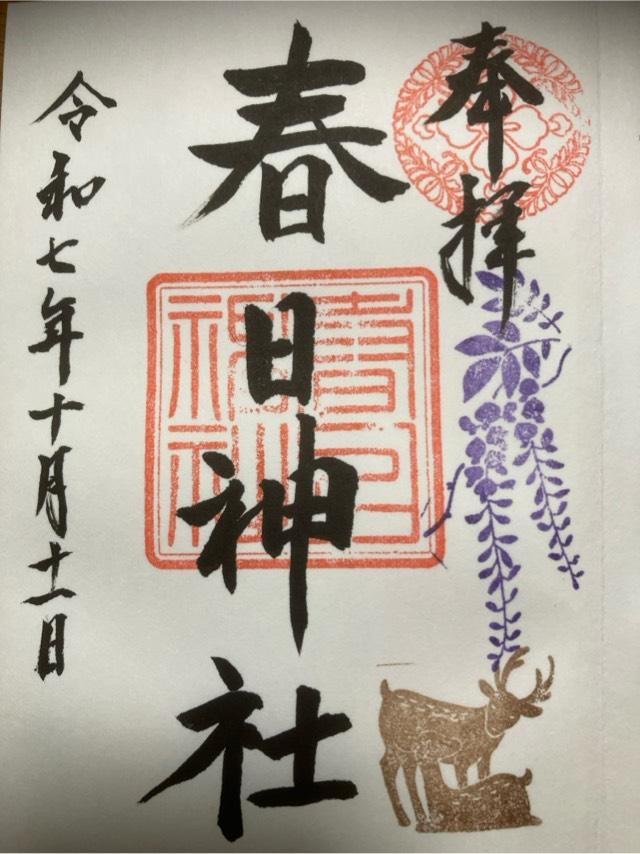 奉拝
春日神社
春日神社
令和七年十月十一日